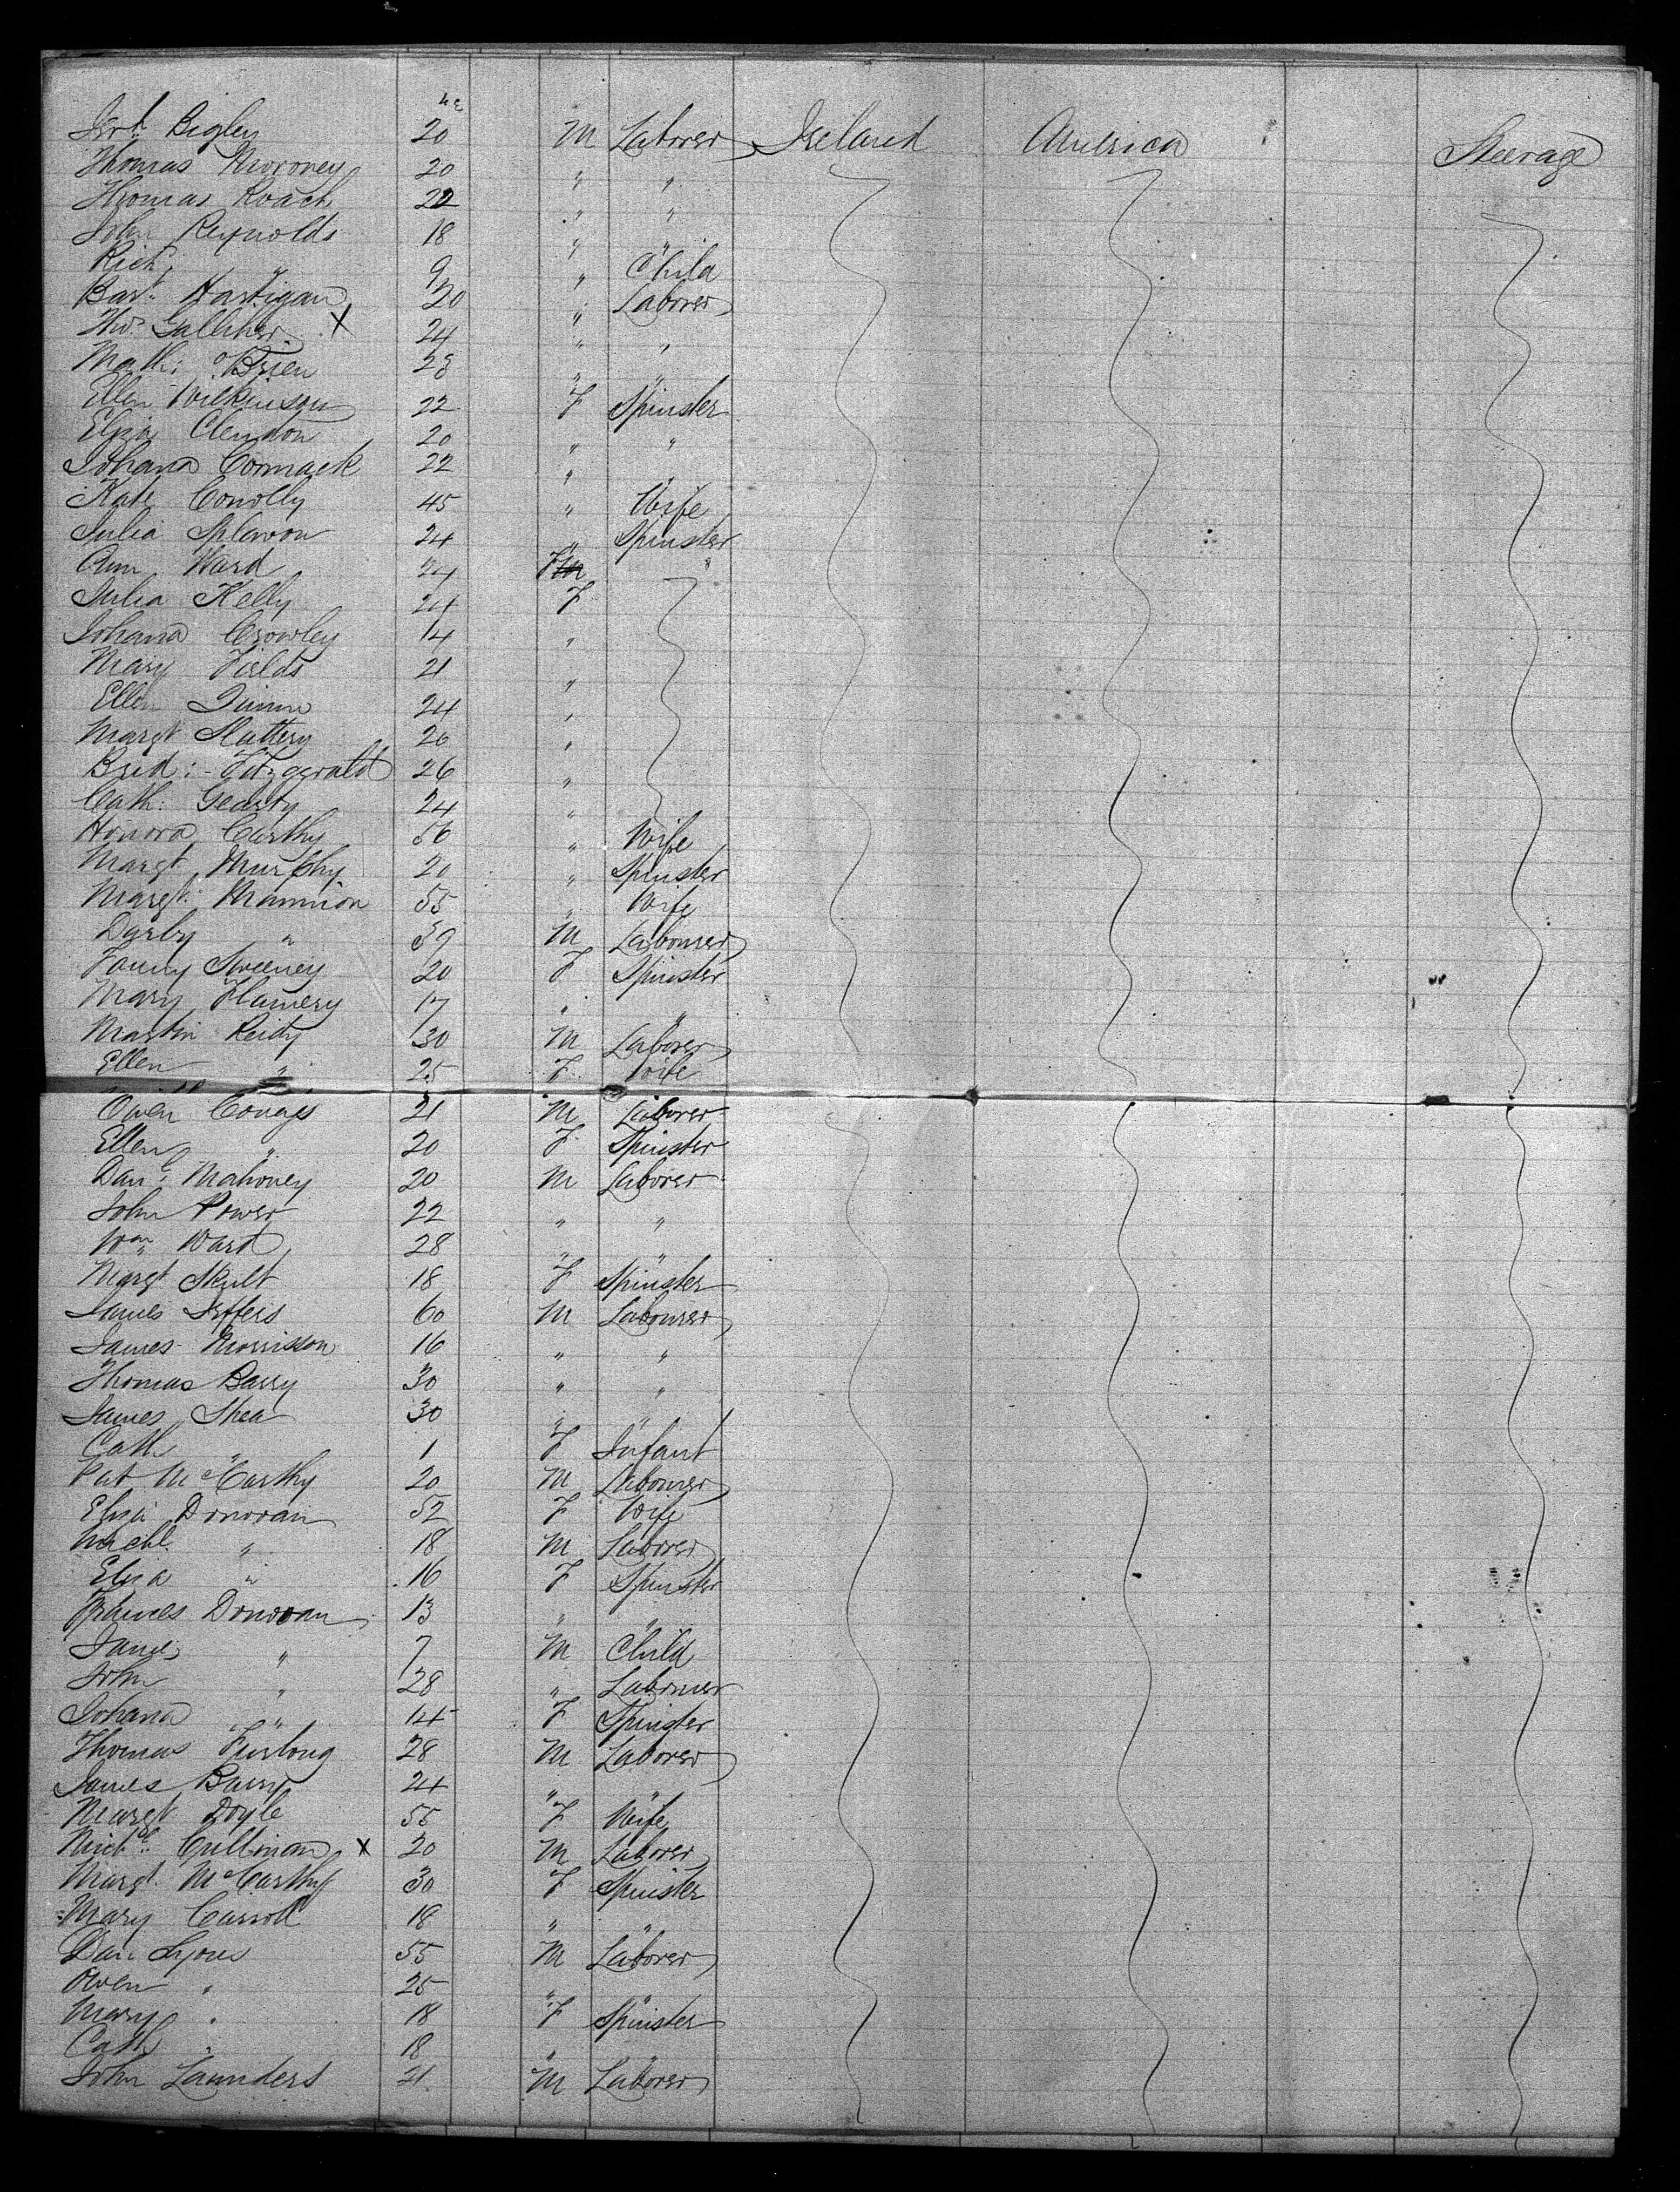 Jer.h Bigley 20 M Laborer Ireland America Steerage
Thomas Moroney 20 " "
Thomas Roach 22 " "
John Reynolds 18 " "
Rich.d " 9 " Child
Bart. Hartigan 20 " Laborer
Tho.s Galliher X 24 " "
Math: O'Brien 28 " "
Ellen Wilkinson 22 F Spinster
Eliza Clendon 20 " "
Johana Cormack 22 " "
Kate Conolly 45 " Wife
Julia Splawon 24 " Spinster
Ann Ward 24 F "
Julia Kelly 24 F
Johana Crowley 14 "
Mary Fields 21 "
Ellen Quinn 24 "
Margt Slattery 20 "
Brid: Fitzgerald 26 "
Cath: Gearty 24 "
Honora Carthy 56 " Wife
Margt Murphy 20 " Spinster
Margt: Mannion 55 " Wife
Darby " 59 M Labourer
Fanny Sweeney 20 F Spinster
Mary Flanery 17 " "
Martin Reidy 30 M Laborer
Ellen " 25 F Wife
Owen 21 M Laborer
Ellen " 20 F Spinster
Danl Mahoney 20 M Laborer
John Power 22 " "
Wm Ward 28 " "
Margt Skult 18 F Spinster
James Jeffers 60 M Labourer
James Morrisson 16 " "
Thomas Barry 30 " "
James Shea 30 " "
Cath " 1 F Infant
Pat McCarthy 20 M Labourer
Eliza Donovan 52 F Wife
Michl. " 18 M Laborer
Eliza " 16 F Spinster
Frances Donovan 13 " "
James " 7 M Child
John " 28 " Labourer
Johana " 14 F Spinster
Thomas Furlong 28 M Laborer
James Barry 24 " "
Margt Doyle 55 F Wife
Michl. Cullinan X 20 M Laborer
Margt. McCarthy 30 F Spinster
Mary Carroll 18 " "
Dan Lyons 55 M Laborer
Owen " 25 " "
Mary " 18 F Spinster
Cath " 18 " "
John Launders 21 M Laborer